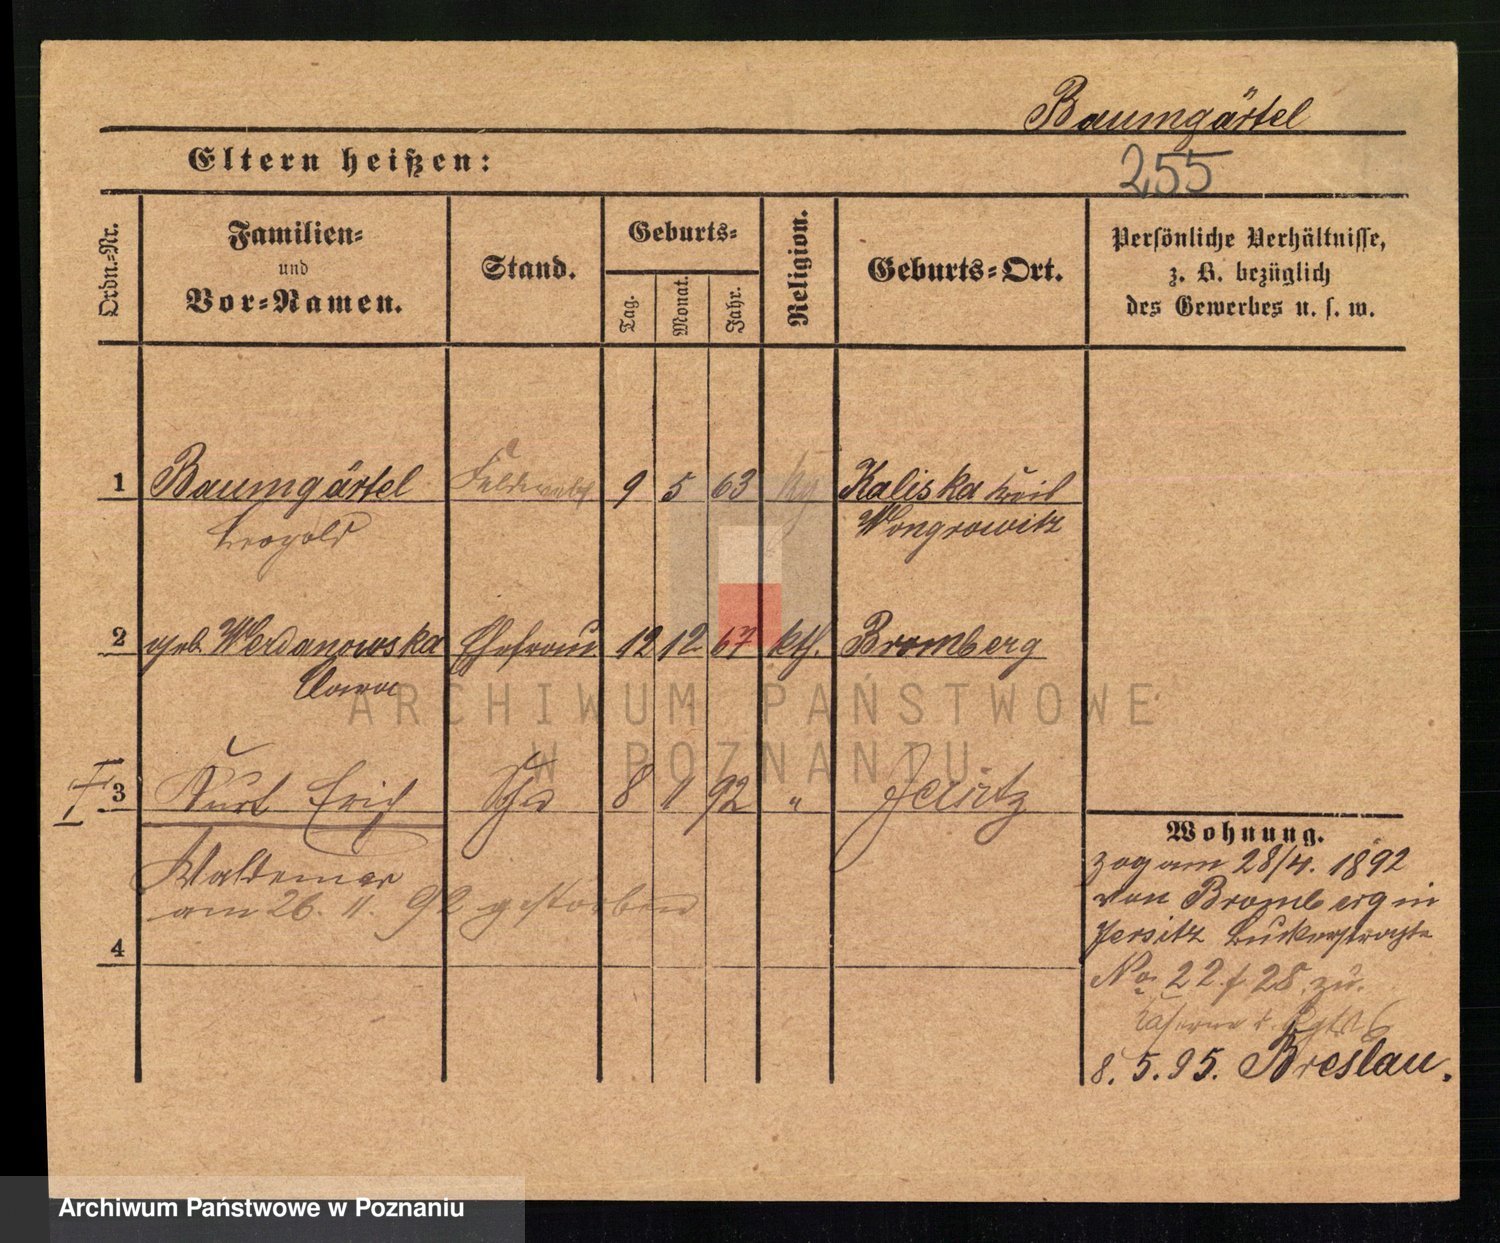 Baumgärtel
Eltern heißen:
255
Ordn.-Nr.
Familien-
und
Vor-Namen.
Stand.
Geburts-
Tag.
Monat.
Jahr.
Religion.
Geburts-Ort.
Persönliche Verhältnisse,
z. B. bezüglich
des Gewerbes u. s. w.
1 Baumgärtel Feldwebel 9 5 63 Kaliska Kreis
Leopold Wongrowitz
2 geb. Werdanowska Ehefrau 12 12. 67 kth. Bromberg
Clara
3 Kurt Erich Shd 8 11 92 " Jersitz
Waldemar
am 26. 11. 92 gestorben
4
Wohnung.
zog am 28/4. 1892
von Bromberg in
Jersitz
No 22 f. 28 zu.
Kaserne
8. 5. 95. Breslau.
ARCHIWUM PAŃSTWOWE
W POZNANIU
Archiwum Państwowe w Poznaniu